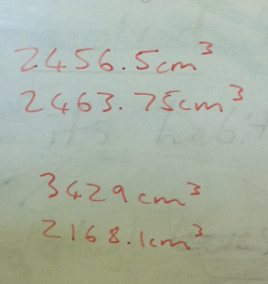 2456.5cm³
2463.75cm³
3429cm³
2168.1cm³